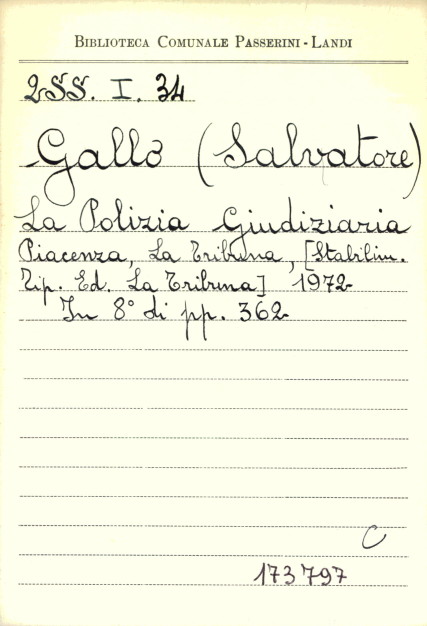 BIBLIOTECA COMUNALE PASSERINI - LANDI
2SS. I. 34
Gallo (Salvatore)
La Polizia Giudiziaria
Piacenza, La Tribuna, [Stabilim.
Tip. Ed. La Tribuna] 1972
In 8° di pp. 362
C
173797